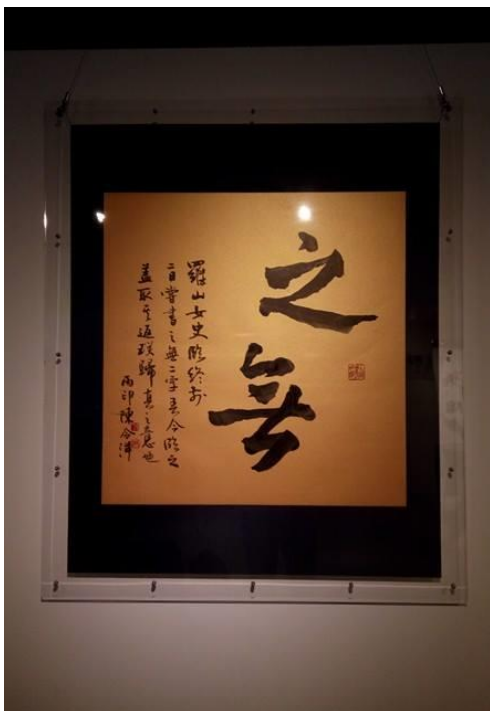 之無
羅山女史臨終前
二日嘗書之無二字吾今臨之
蓋取其返璞歸真之意也
陳